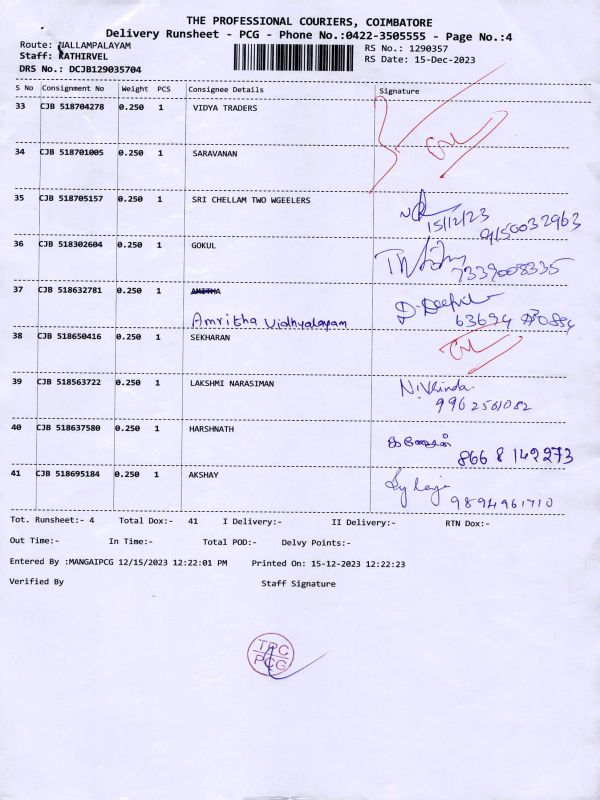 THE PROFESSIONAL COURIERS, COIMBATORE
Delivery Runsheet - PCG - Phone No.:0422-3505555 - Page No.:4
Route: NALLAMPALAYAM
RS No.: 1290357
Staff: KATHIRVEL
RS Date: 15-Dec-2023
DRS No.: DCJB129035704
S No Consignment No Weight PCS Consignee Details Signature
33 CJB 518704278 0.250 1 VIDYA TRADERS
34 CJB 518701005 0.250 1 SARAVANAN
35 CJB 518705157 0.250 1 SRI CHELLAM TWO WGEELERS
15/12/23
9150032963
36 CJB 518302604 0.250 1 GOKUL
7339008335
37 CJB 518632781 0.250 1 AMITHA
Amritha Vidhyalayam
D-Deepi
38 CJB 518650416 0.250 1 SEKHARAN
39 CJB 518563722 0.250 1 LAKSHMI NARASIMAN
N.Vrinda
9962561082
40 CJB 518637580 0.250 1 HARSHNATH
8668142273
41 CJB 518695184 0.250 1 AKSHAY
9894961710
Tot. Runsheet:- 4 Total Dox:- 41 I Delivery:- II Delivery:- RTN Dox:-
Out Time:- In Time:- Total POD:- Delvy Points:-
Entered By :MANGAIPCG 12/15/2023 12:22:01 PM Printed On: 15-12-2023 12:22:23
Verified By Staff Signature
TPC
PCG